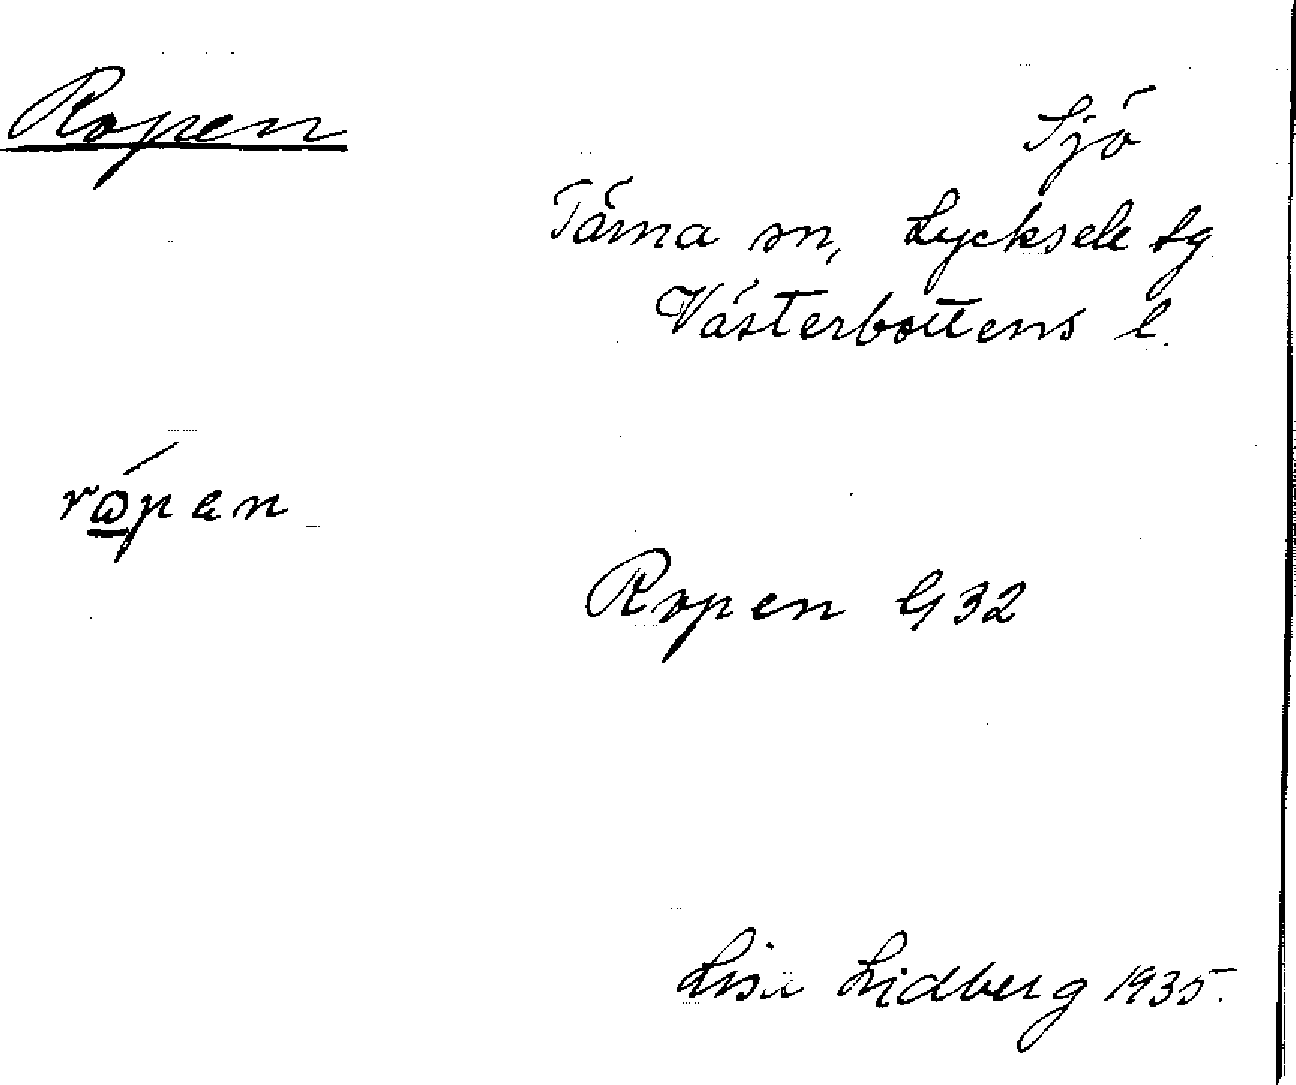 Ropen
Sjö
Tärna sn, Lycksele lg
Västerbottens l.
rópan
Ropen G 32
Lisa Lidberg 1935.